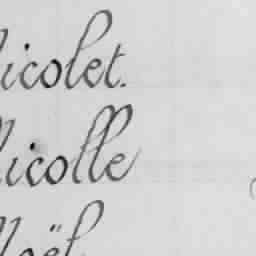 icolet.
icolle
oël